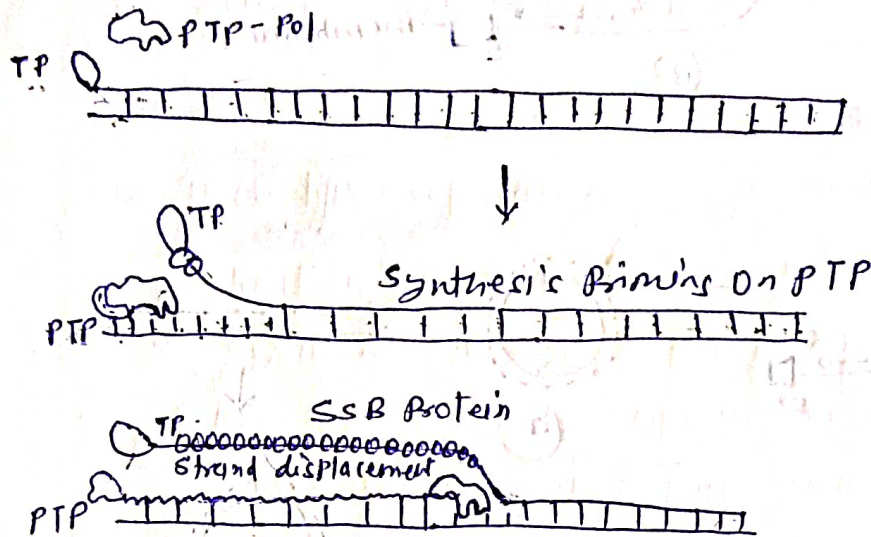 PTP-Pol
TP
TP
Synthesis Priming On PTP
PTP
SSB Protein
TP
Strand displacement
PTP